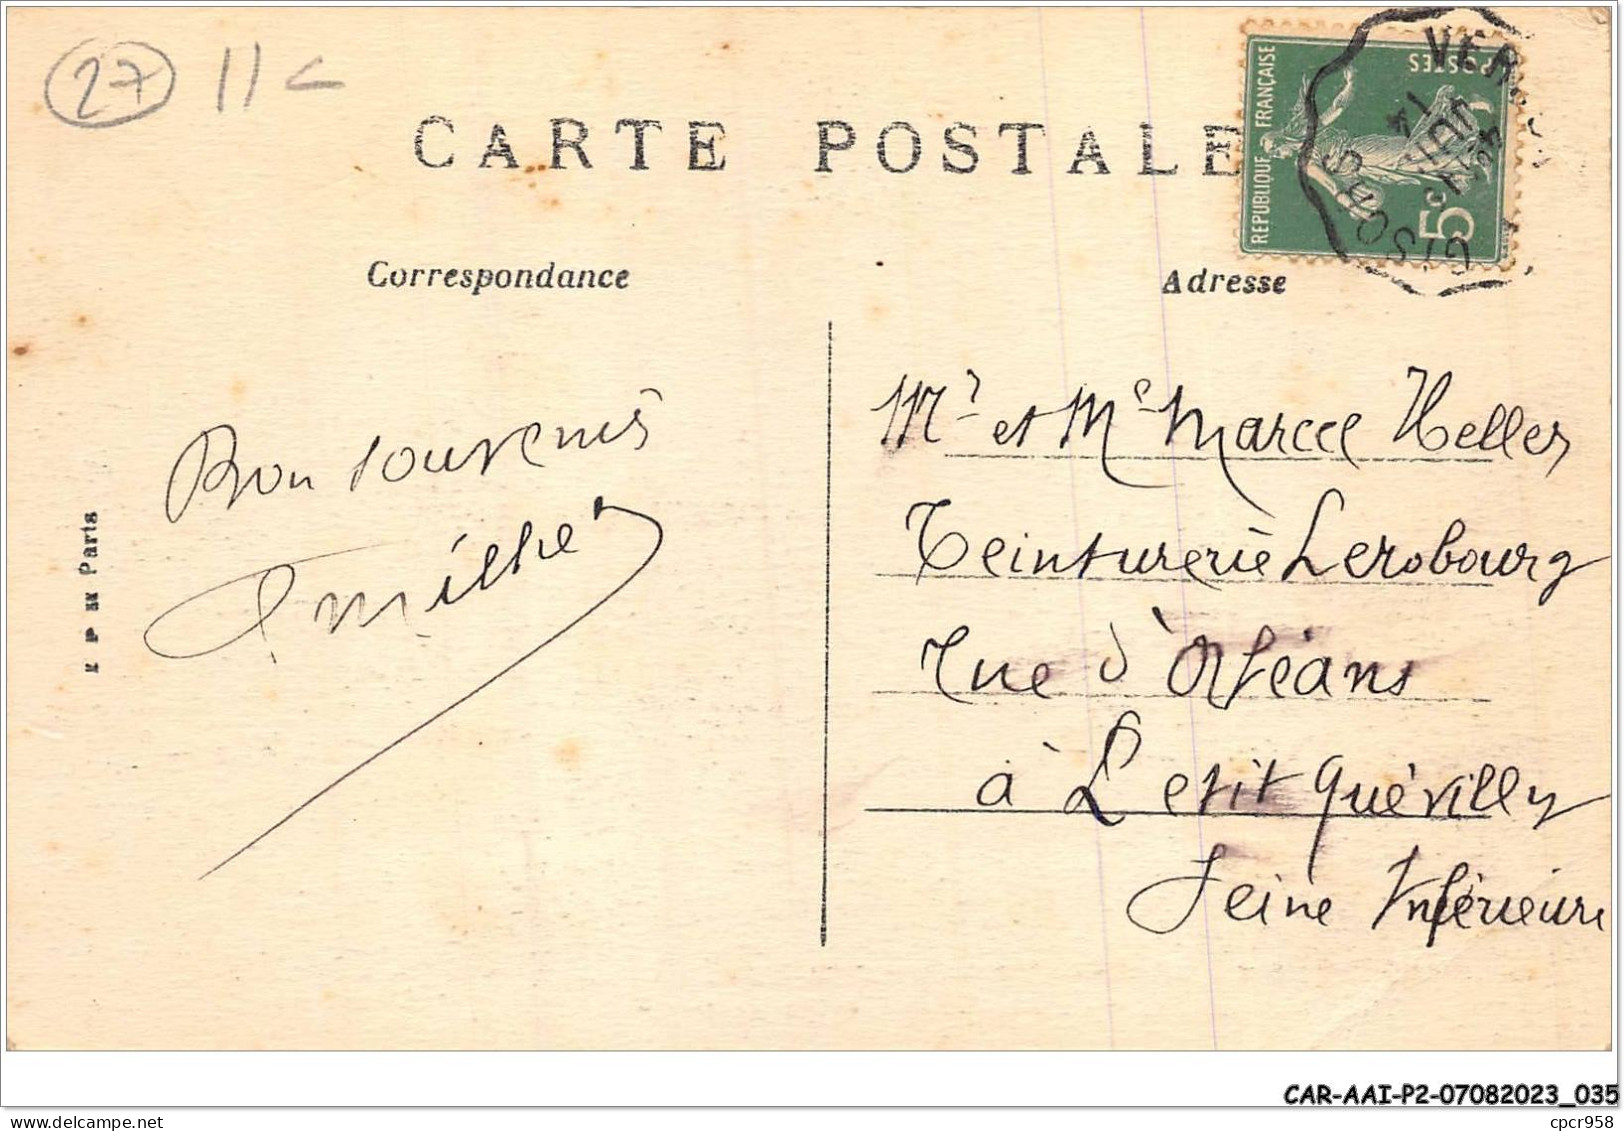 27 11
CARTE POSTALE
REPUBLIQUE FRANÇAISE
POSTES
5c
14
JUIL
GISORS
Correspondance
Adresse
Bon souvenirs
Mr et Me Marcel Heller
Teinturerie Lerobourg
rue d'Orléans
à Petit Quévilly
Seine Inférieure
Paris
CAR-AAI-P2-07082023_035
cpcr958